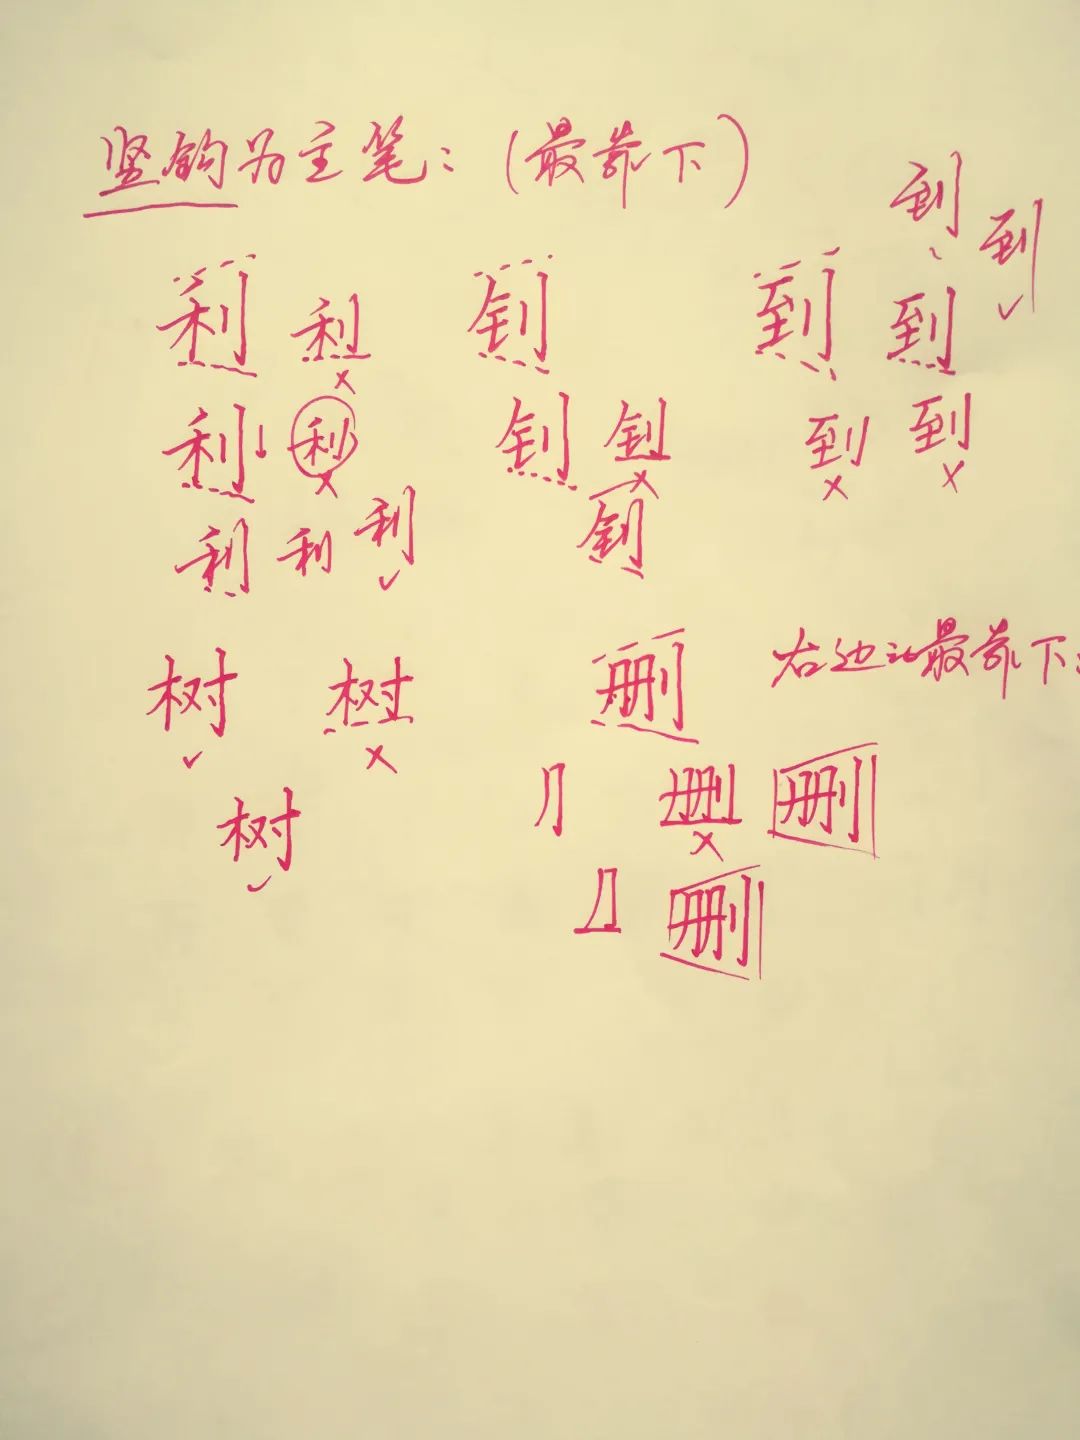 竖钩为主笔：（最靠下）
到
到 ✓
利 利 × 钊 到 到
利 利 × 钊 钊 × 到 × 到 ×
利 利 利 ✓ 钊
树 ✓ 树 × 删 右边让最靠下：
树 ✓ 删 × 删
删